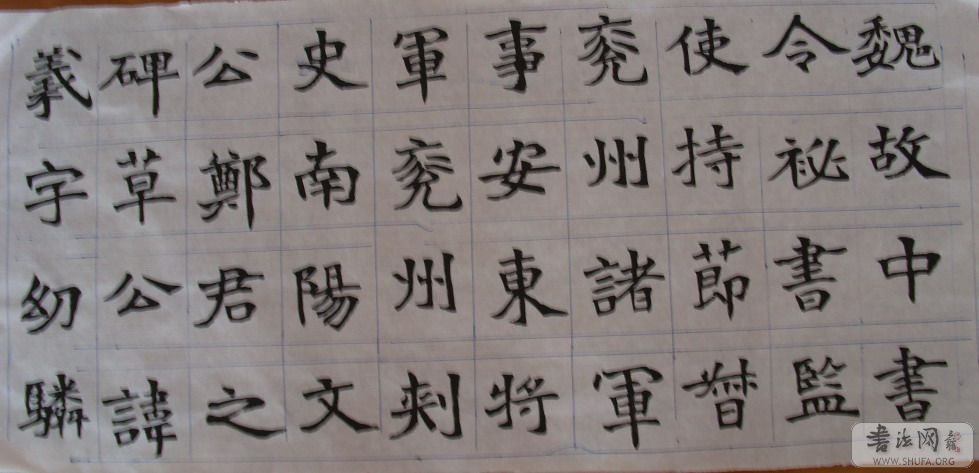 魏故中書
令祕書監
使持節督
兖州諸軍
事安東將
軍兖州刾
史南陽文
公鄭君之
碑草公諱
義字幼驎
书法网
WWW.SHUFA.ORG